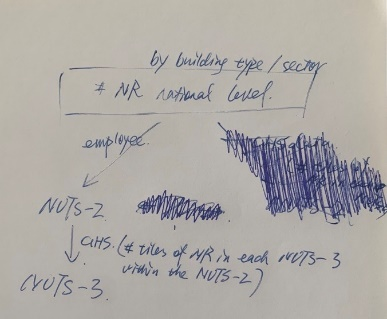 by building type / sector
# NR national level.
employee.
NUTS-2
GHS. (# tiles of NR in each NUTS-3
within the NUTS-2)
NUTS-3.